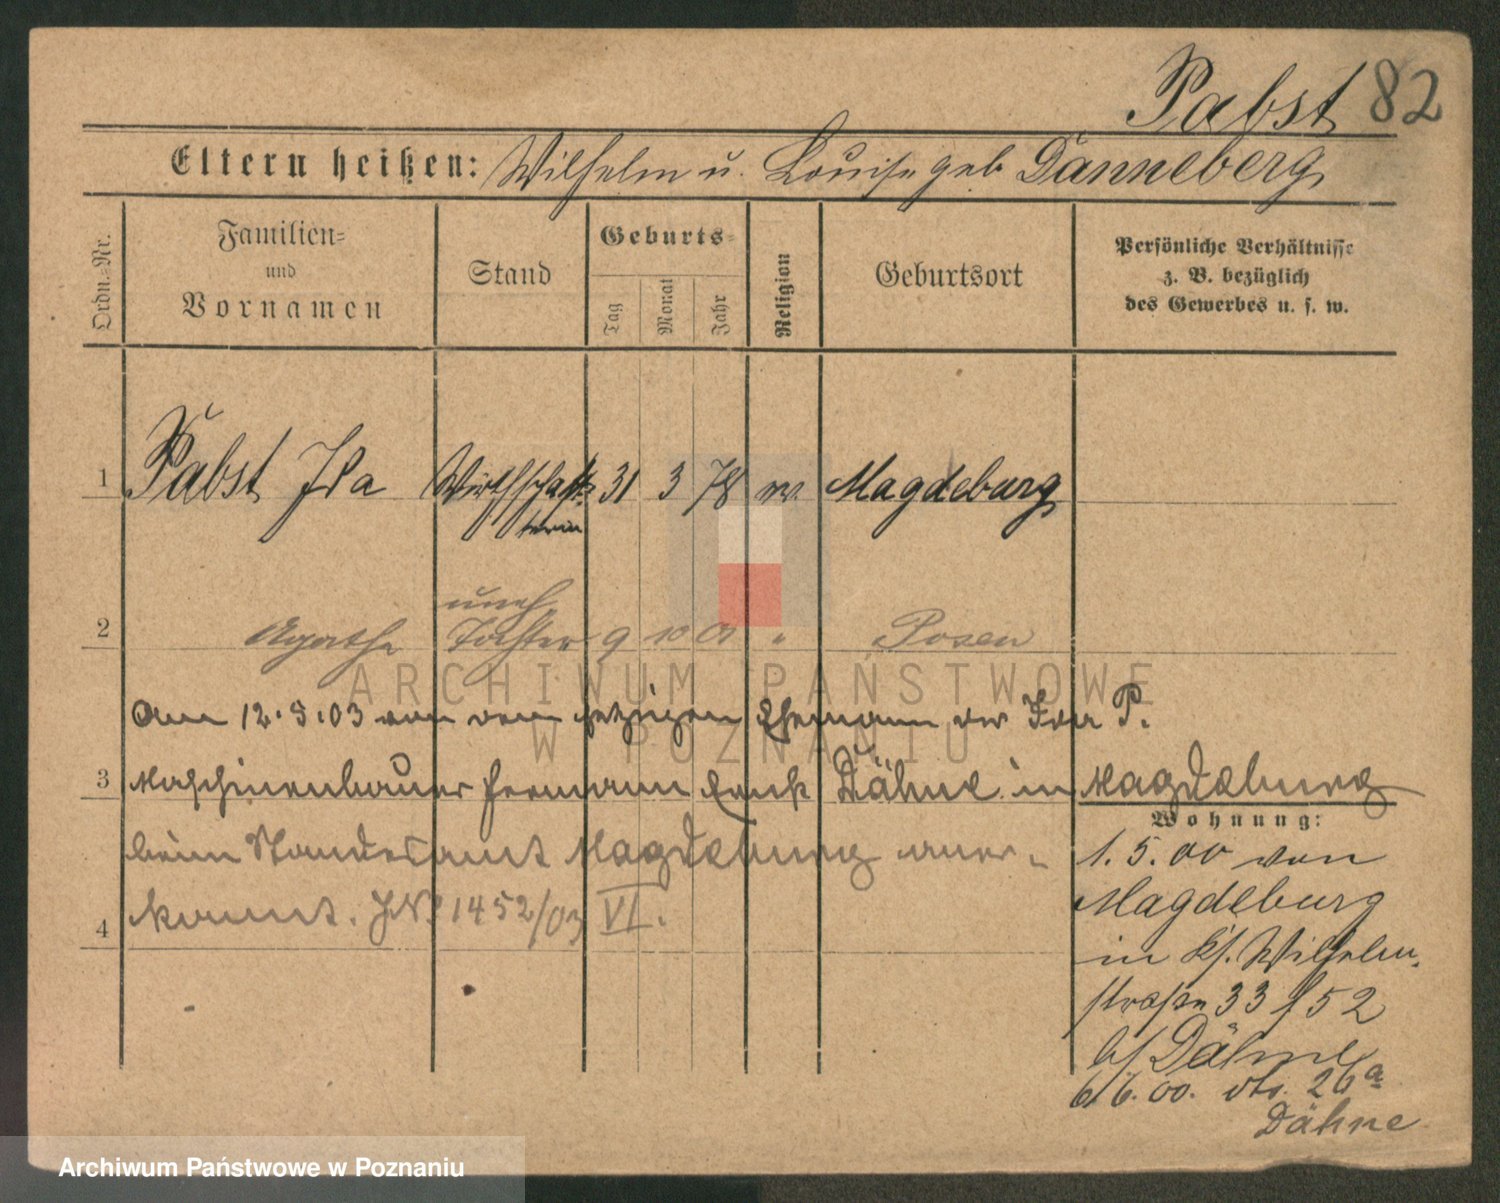 Pabst 82
Eltern heißen: Wilhelm u. Louise geb Danneberg
Ordn.-Nr.
Familien-
und
Vornamen
Stand
Geburts-
Tag
Monat
Jahr
Religion
Geburtsort
Persönliche Verhältnisse
z. B. bezüglich
des Gewerbes u. s. w.
1 Pabst Ida Wirthschaf-
terin 31 3 78 ev. Magdeburg
uneh.
2 Agathe Tochter 9 10 01 " Posen
Am 12.5.03 von dem jetzigen Ehemann der Ida P.
3 Maschinenbauer Hermann Ernst Dähne in Magdeburg
beim Standesamt Magdeburg aner-
4 kannt. JN° 1452/03 VI.
Wohnung:
1.5.00 von
Magdeburg
in Wilhelm-
straße 33 52
b/ Dähne
6.6.00. 26a
Dähne
ARCHIWUM PAŃSTWOWE
W POZNANIU
Archiwum Państwowe w Poznaniu